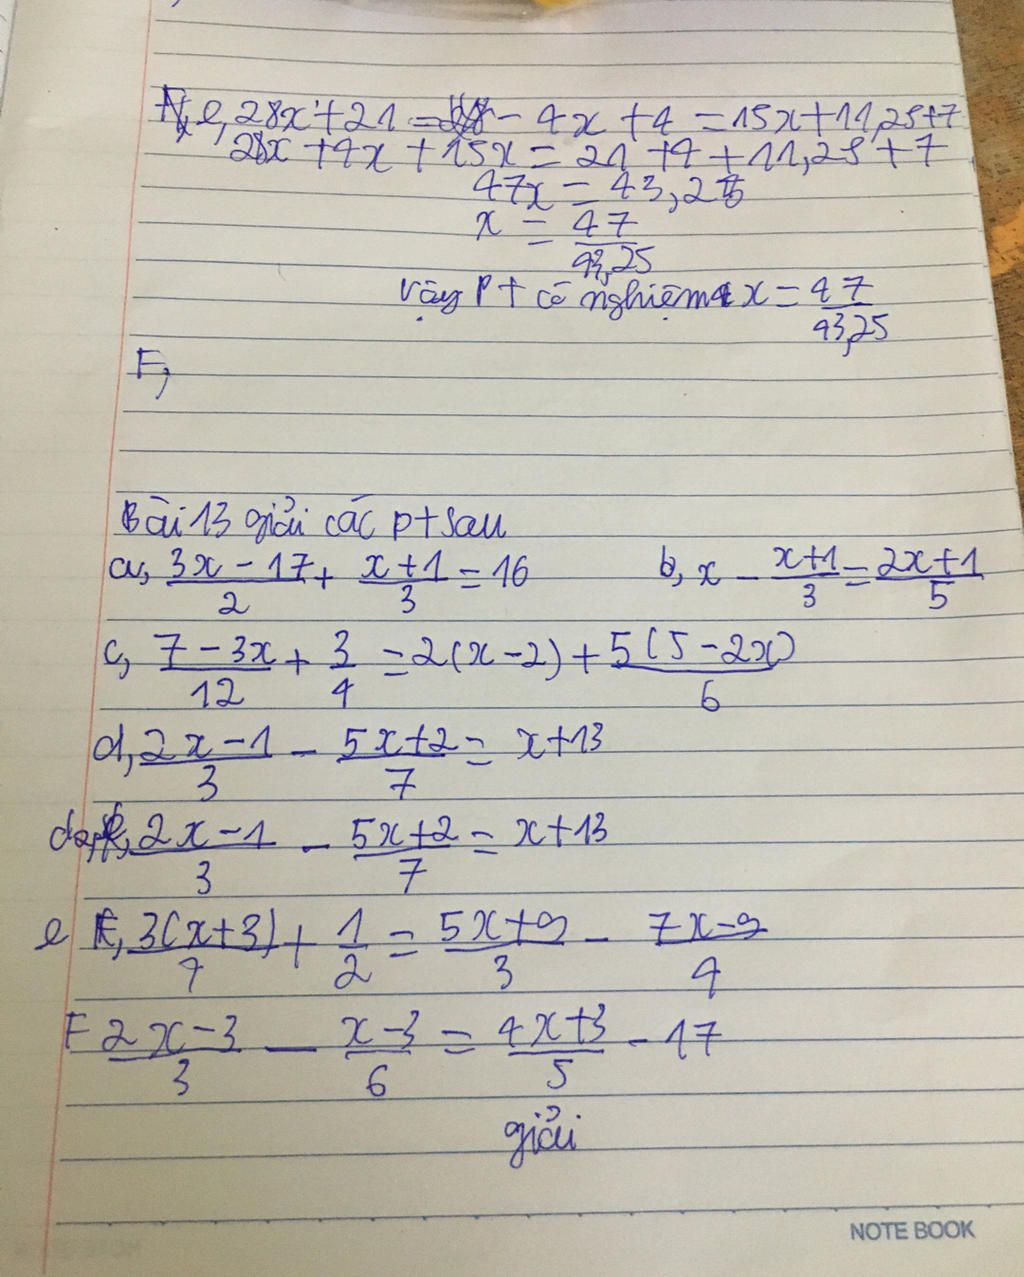 e, 28x + 21 = - 4x + 4 = 15x + 11,25 + 7
28x + 4x + 15x = 21 + 4 + 11,25 + 7
47x = 43,25
x = 47/43,25
Vậy P+ có nghiệm x = 47/43,25
F,
Bài 13 giải các p+ sau
a, (3x - 17)/2 + (x + 1)/3 = 16 b, x - (x+1)/3 = (2x+1)/5
c, (7 - 3x)/12 + 3/4 = 2(x - 2) + 5(5 - 2x)/6
d, (2x - 1)/3 - (5x + 2)/7 = x + 13
(2x - 1)/3 - (5x + 2)/7 = x + 13
e, 3(x + 3)/4 + 1/2 = (5x + 9)/3 - (7x - 9)/4
F (2x - 3)/3 - (x - 3)/6 = (4x + 3)/5 - 17
giải
NOTE BOOK